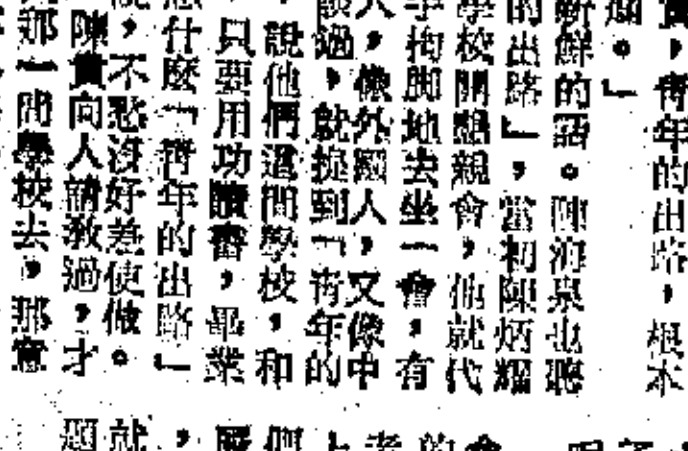 ，青年的出路，根本
。」
新鮮的話。陳海泉也聽
的出路」，當初陳炳耀
學校開懇親會，他就代
手拘脚地去坐一會，有
人，像外國人，又像中
談過，就提到「青年的
說他們這間學校，和
只要用功讀書，畢業
什麼「青年的出路」
，不愁沒好差使做。
陳貫向人請教過，才
那一間學校去，那意
們
，
就
題